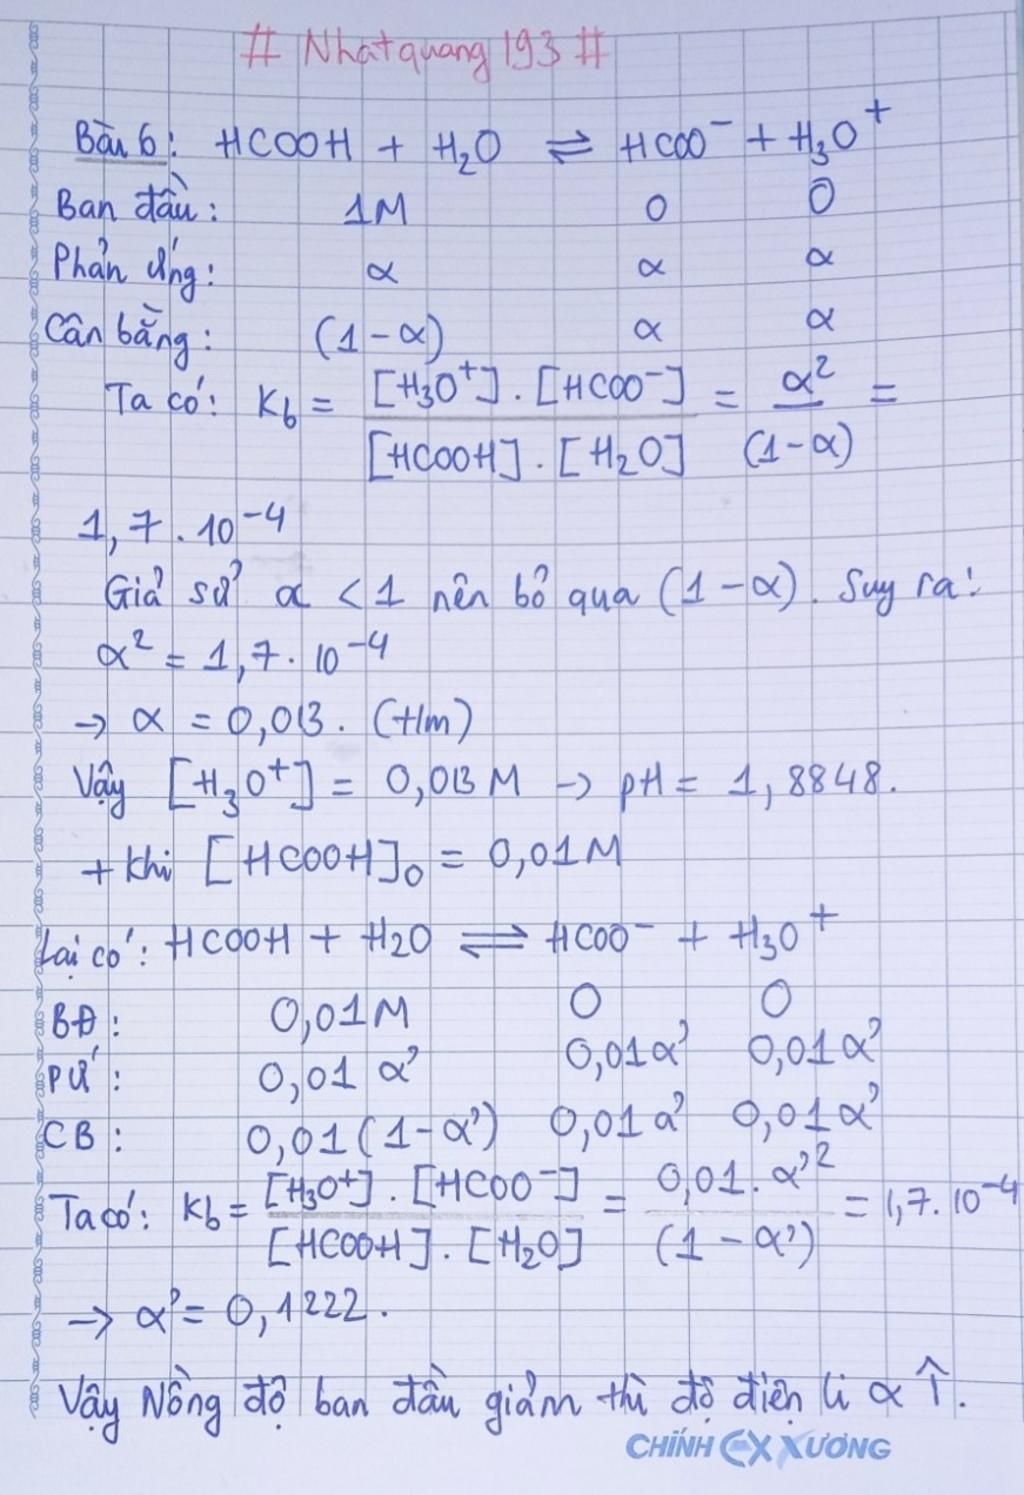 # Nhatquang193 #
Bài 6: HCOOH + H₂O ⇌ HCOO⁻ + H₃O⁺
Ban đầu: 1M 0 0
Phản ứng: α α α
Cân bằng: (1-α) α α
Ta có: K_b = [H₃O⁺].[HCOO⁻] / [HCOOH].[H₂O] = α² / (1-α) =
1,7.10⁻⁴
Giả sử α < 1 nên bỏ qua (1-α). Suy ra:
α² = 1,7.10⁻⁴
→ α = 0,013. (t/m)
Vậy [H₃O⁺] = 0,013 M → pH = 1,8848.
+ Khi [HCOOH]₀ = 0,01M
Lại có: HCOOH + H2O ⇌ HCOO⁻ + H3O⁺
BĐ: 0,01M 0 0
PƯ: 0,01 α' 0,01α' 0,01α'
CB: 0,01(1-α') 0,01α' 0,01α'
Ta có: K_b = [H₃O⁺].[HCOO⁻] / [HCOOH].[H₂O] = 0,01.α'² / (1-α') = 1,7.10⁻⁴
→ α' = 0,1222.
Vậy Nồng độ ban đầu giảm thì độ điện li α ↑.
CHÍNH EX XƯƠNG